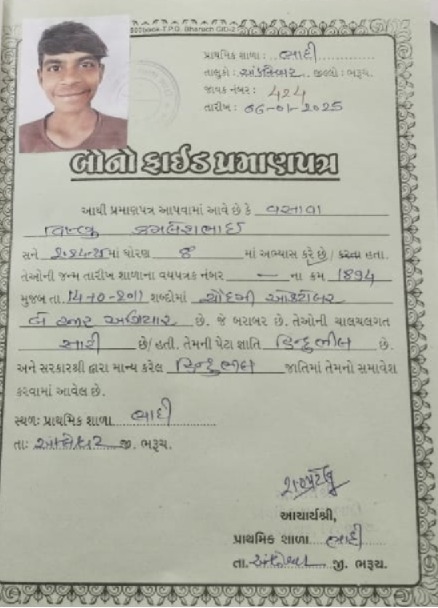 પ્રાથમિક શાળા : બાદી
તાલુકો : અંકલેશ્વર જીલ્લો : ભરૂચ.
જાવક નંબર : ૪૨૪
તારીખ : 06-01-2025
બોનોફાઈડ પ્રમાણપત્ર
આથી પ્રમાણપત્ર આપવામાં આવે છે કે વસાવા
વિષ્ણુ કમલેશભાઈ
સને ૨૦૨૪-૨૫ માં ધોરણ ૪ માં અભ્યાસ કરે છે / કરતા હતા.
તેઓની જન્મ તારીખ શાળાના વયપત્રક નંબર — ના ક્રમ 1894
મુજબ તા. 14-10-2011 શબ્દોમાં ચૌદમી ઓક્ટોબર
બે હજાર અગિયાર છે. જે બરાબર છે. તેઓની ચાલચલગત
સારી છે/હતી. તેમની પેટા જ્ઞાતિ હિન્દુભીલ છે.
અને સરકારશ્રી દ્વારા માન્ય કરેલ હિન્દુ ભીલ જાતિમાં તેમનો સમાવેશ
કરવામાં આવેલ છે.
સ્થળ: પ્રાથમિક શાળા બાદી
તા: અંકલેશ્વર જી. ભરૂચ.
આચાર્યશ્રી,
પ્રાથમિક શાળા બાદી
તા. અંકલેશ્વર જી. ભરૂચ.